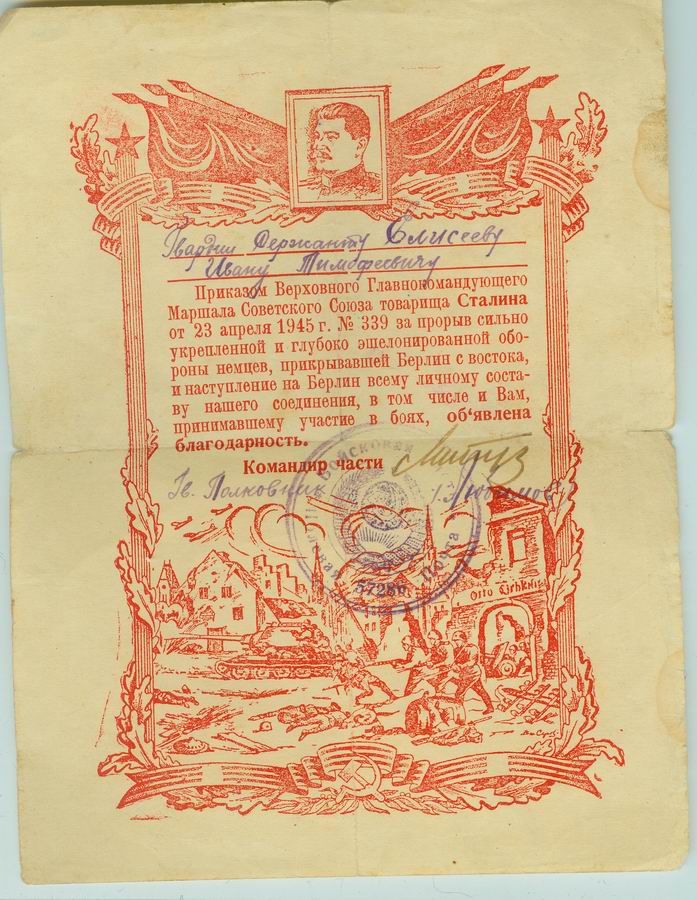 Гвардии Сержанту Елисееву
Ивану Тимофеевичу
Приказом Верховного Главнокомандующего
Маршала Советского Союза товарища Сталина
от 23 апреля 1945 г. № 339 за прорыв сильно
укрепленной и глубоко эшелонированной обо-
роны немцев, прикрывавшей Берлин с востока,
и наступление на Берлин всему личному соста-
ву нашего соединения, в том числе и Вам,
принимавшему участие в боях, об‘явлена
благодарность.
Командир части
Гв. Полковник Любимов
Войсковая
Полевая Почта
57286
Otto